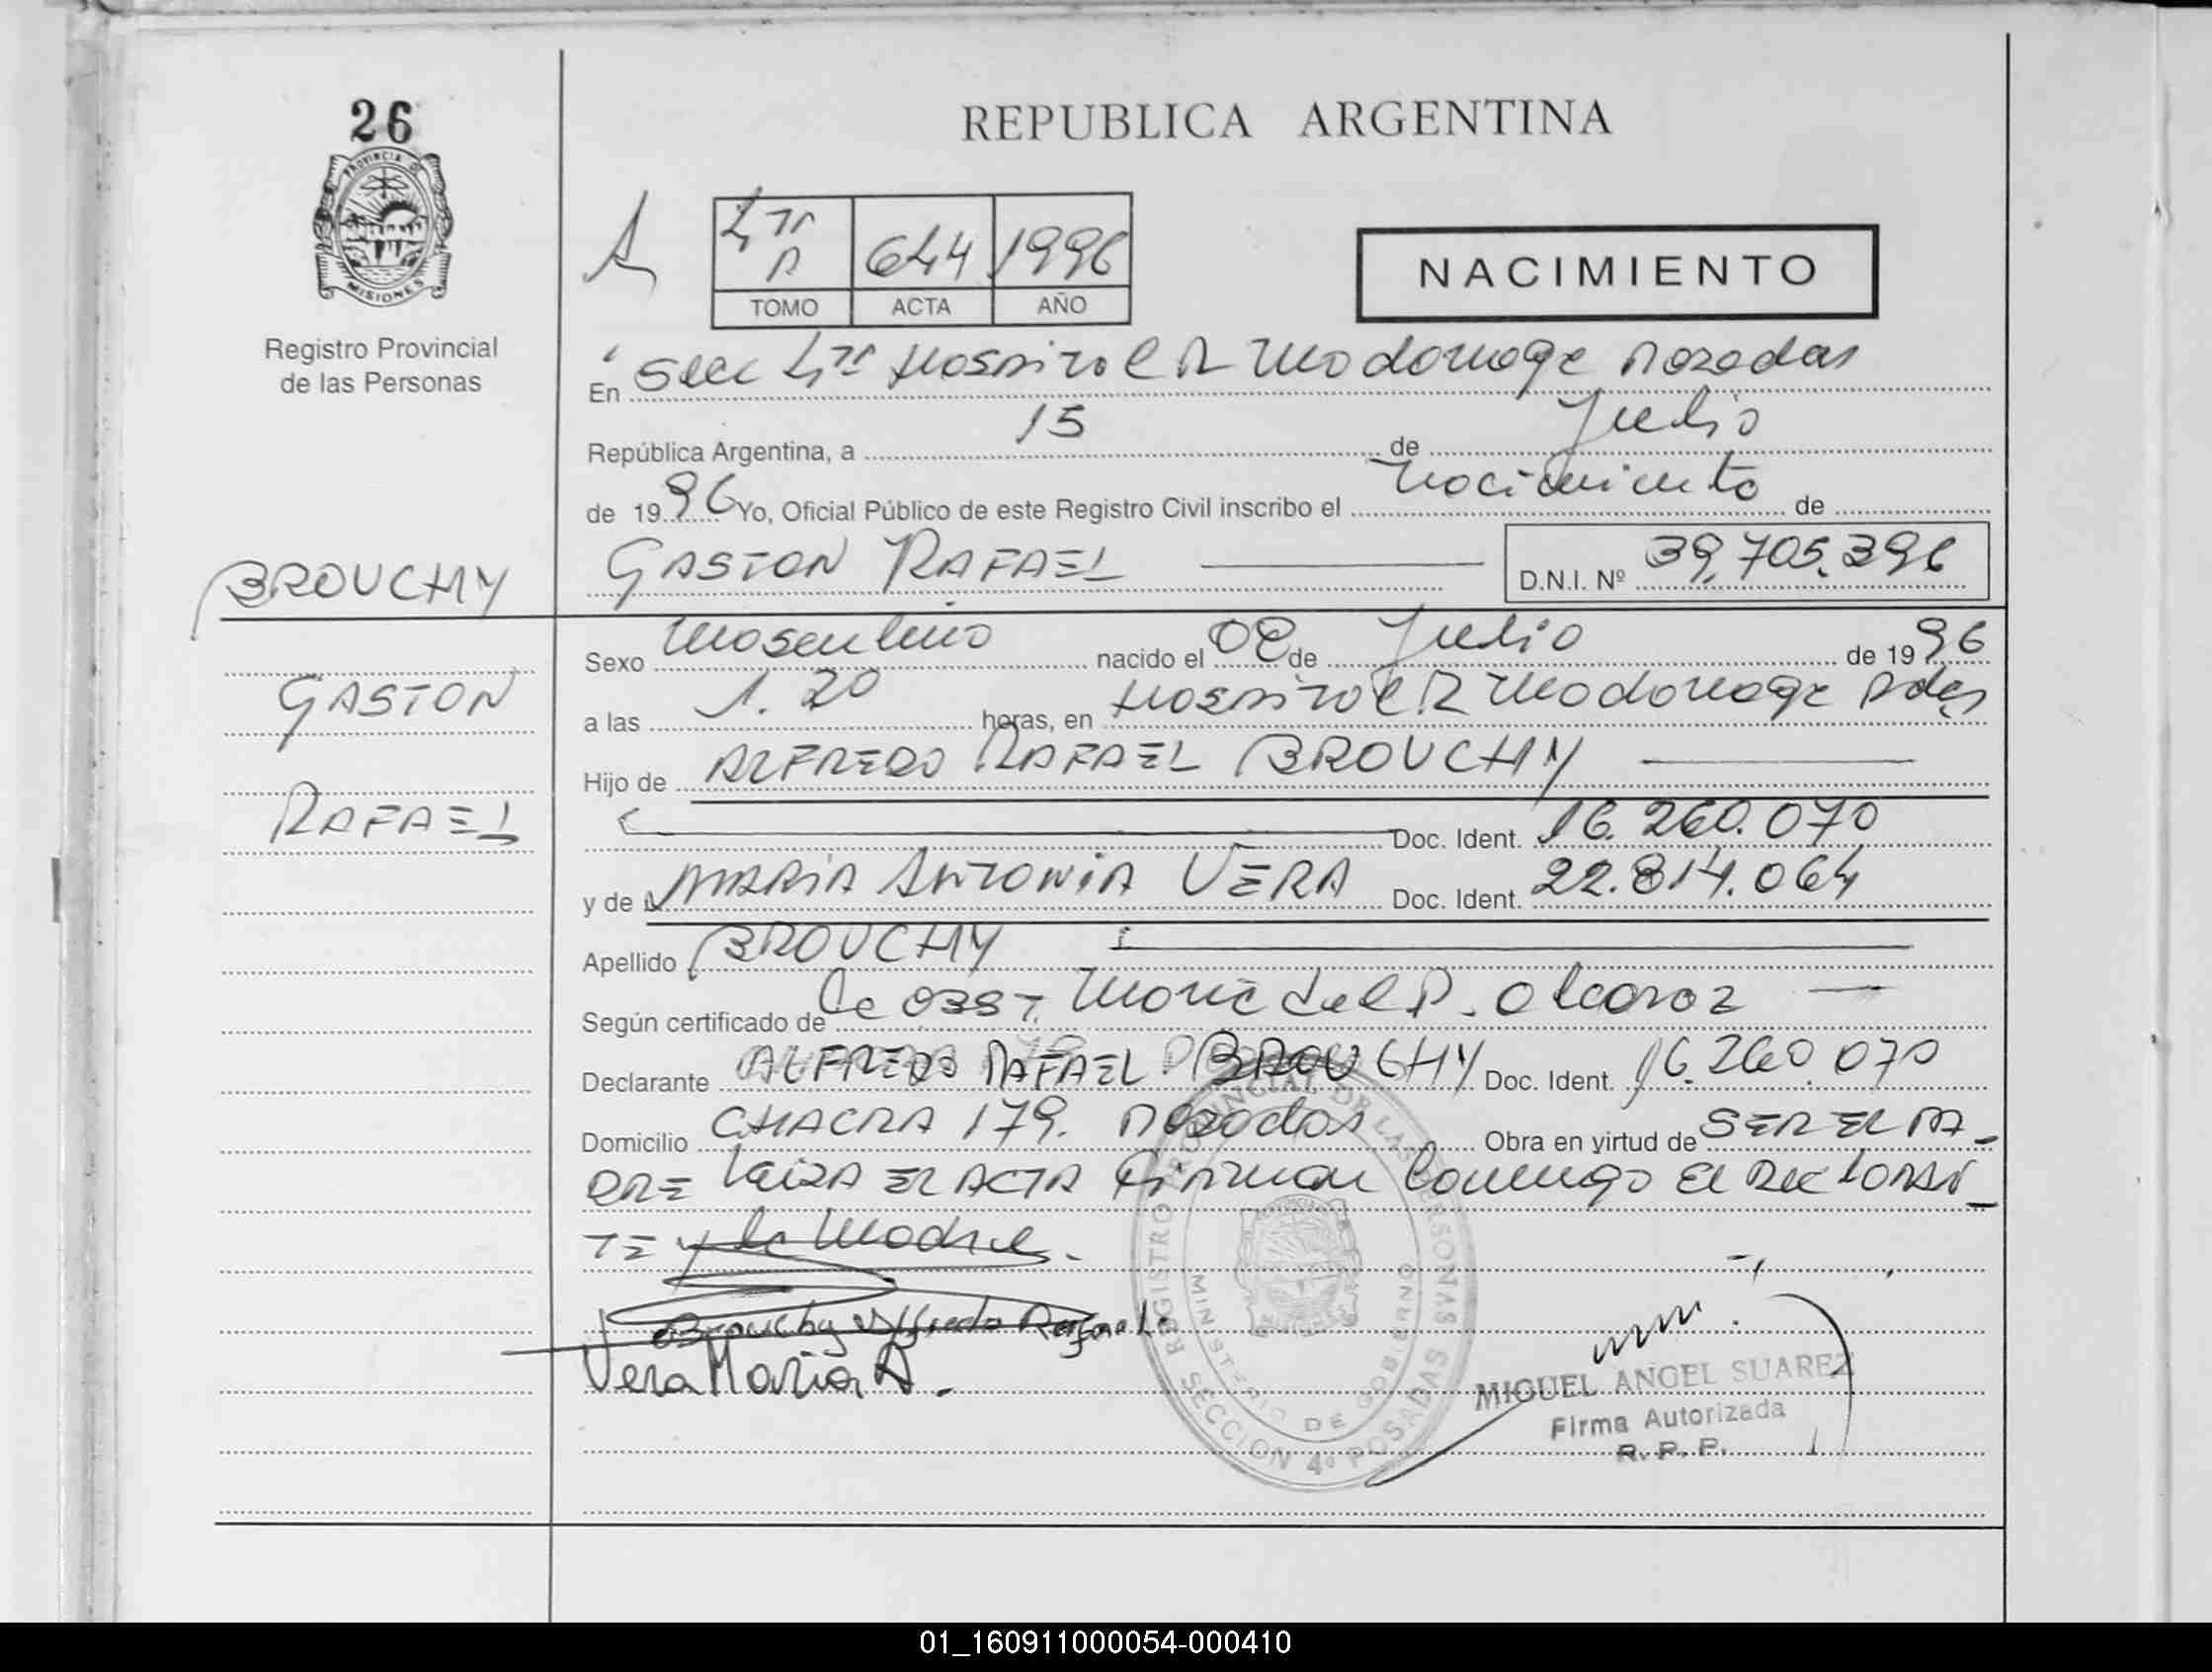 26
PROVINCIA DE
MISIONES
Registro Provincial
de las Personas
REPUBLICA ARGENTINA
4ta 644 1996
TOMO ACTA AÑO
NACIMIENTO
En Secc 4ta Hospital R Madariaga Posadas
República Argentina, a 15 de Julio
de 1996 Yo, Oficial Público de este Registro Civil inscribo el nacimiento de
GASTON RAFAEL D.N.I. Nº 39.705.396
BROUCHY
GASTON
RAFAEL
Sexo Masculino nacido el 08 de Julio de 1996
a las 1.20 horas, en Hospital R Madariaga Pdas
Hijo de ALFREDO RAFAEL BROUCHY
Doc. Ident. 16.260.070
y de MARIA ANTONIA VERA Doc. Ident. 22.814.064
Apellido BROUCHY
Según certificado de Maria del P. Alcaraz
Declarante ALFREDO RAFAEL BROUCHY Doc. Ident. 16.260.070
Domicilio CHACRA 179. Posadas Obra en virtud de SER EL PA-
DRE Leida EL ACTA Firman Conmigo El Declaran-
TE y la Madre.
Brouchy Alfredo Rafael
Vera Maria A.
REGISTRO PROVINCIAL DE LAS PERSONAS
MINISTERIO DE GOBIERNO
SECCION 4ª POSADAS
MIGUEL ANGEL SUAREZ
Firma Autorizada
R. P. P.
01_160911000054-000410